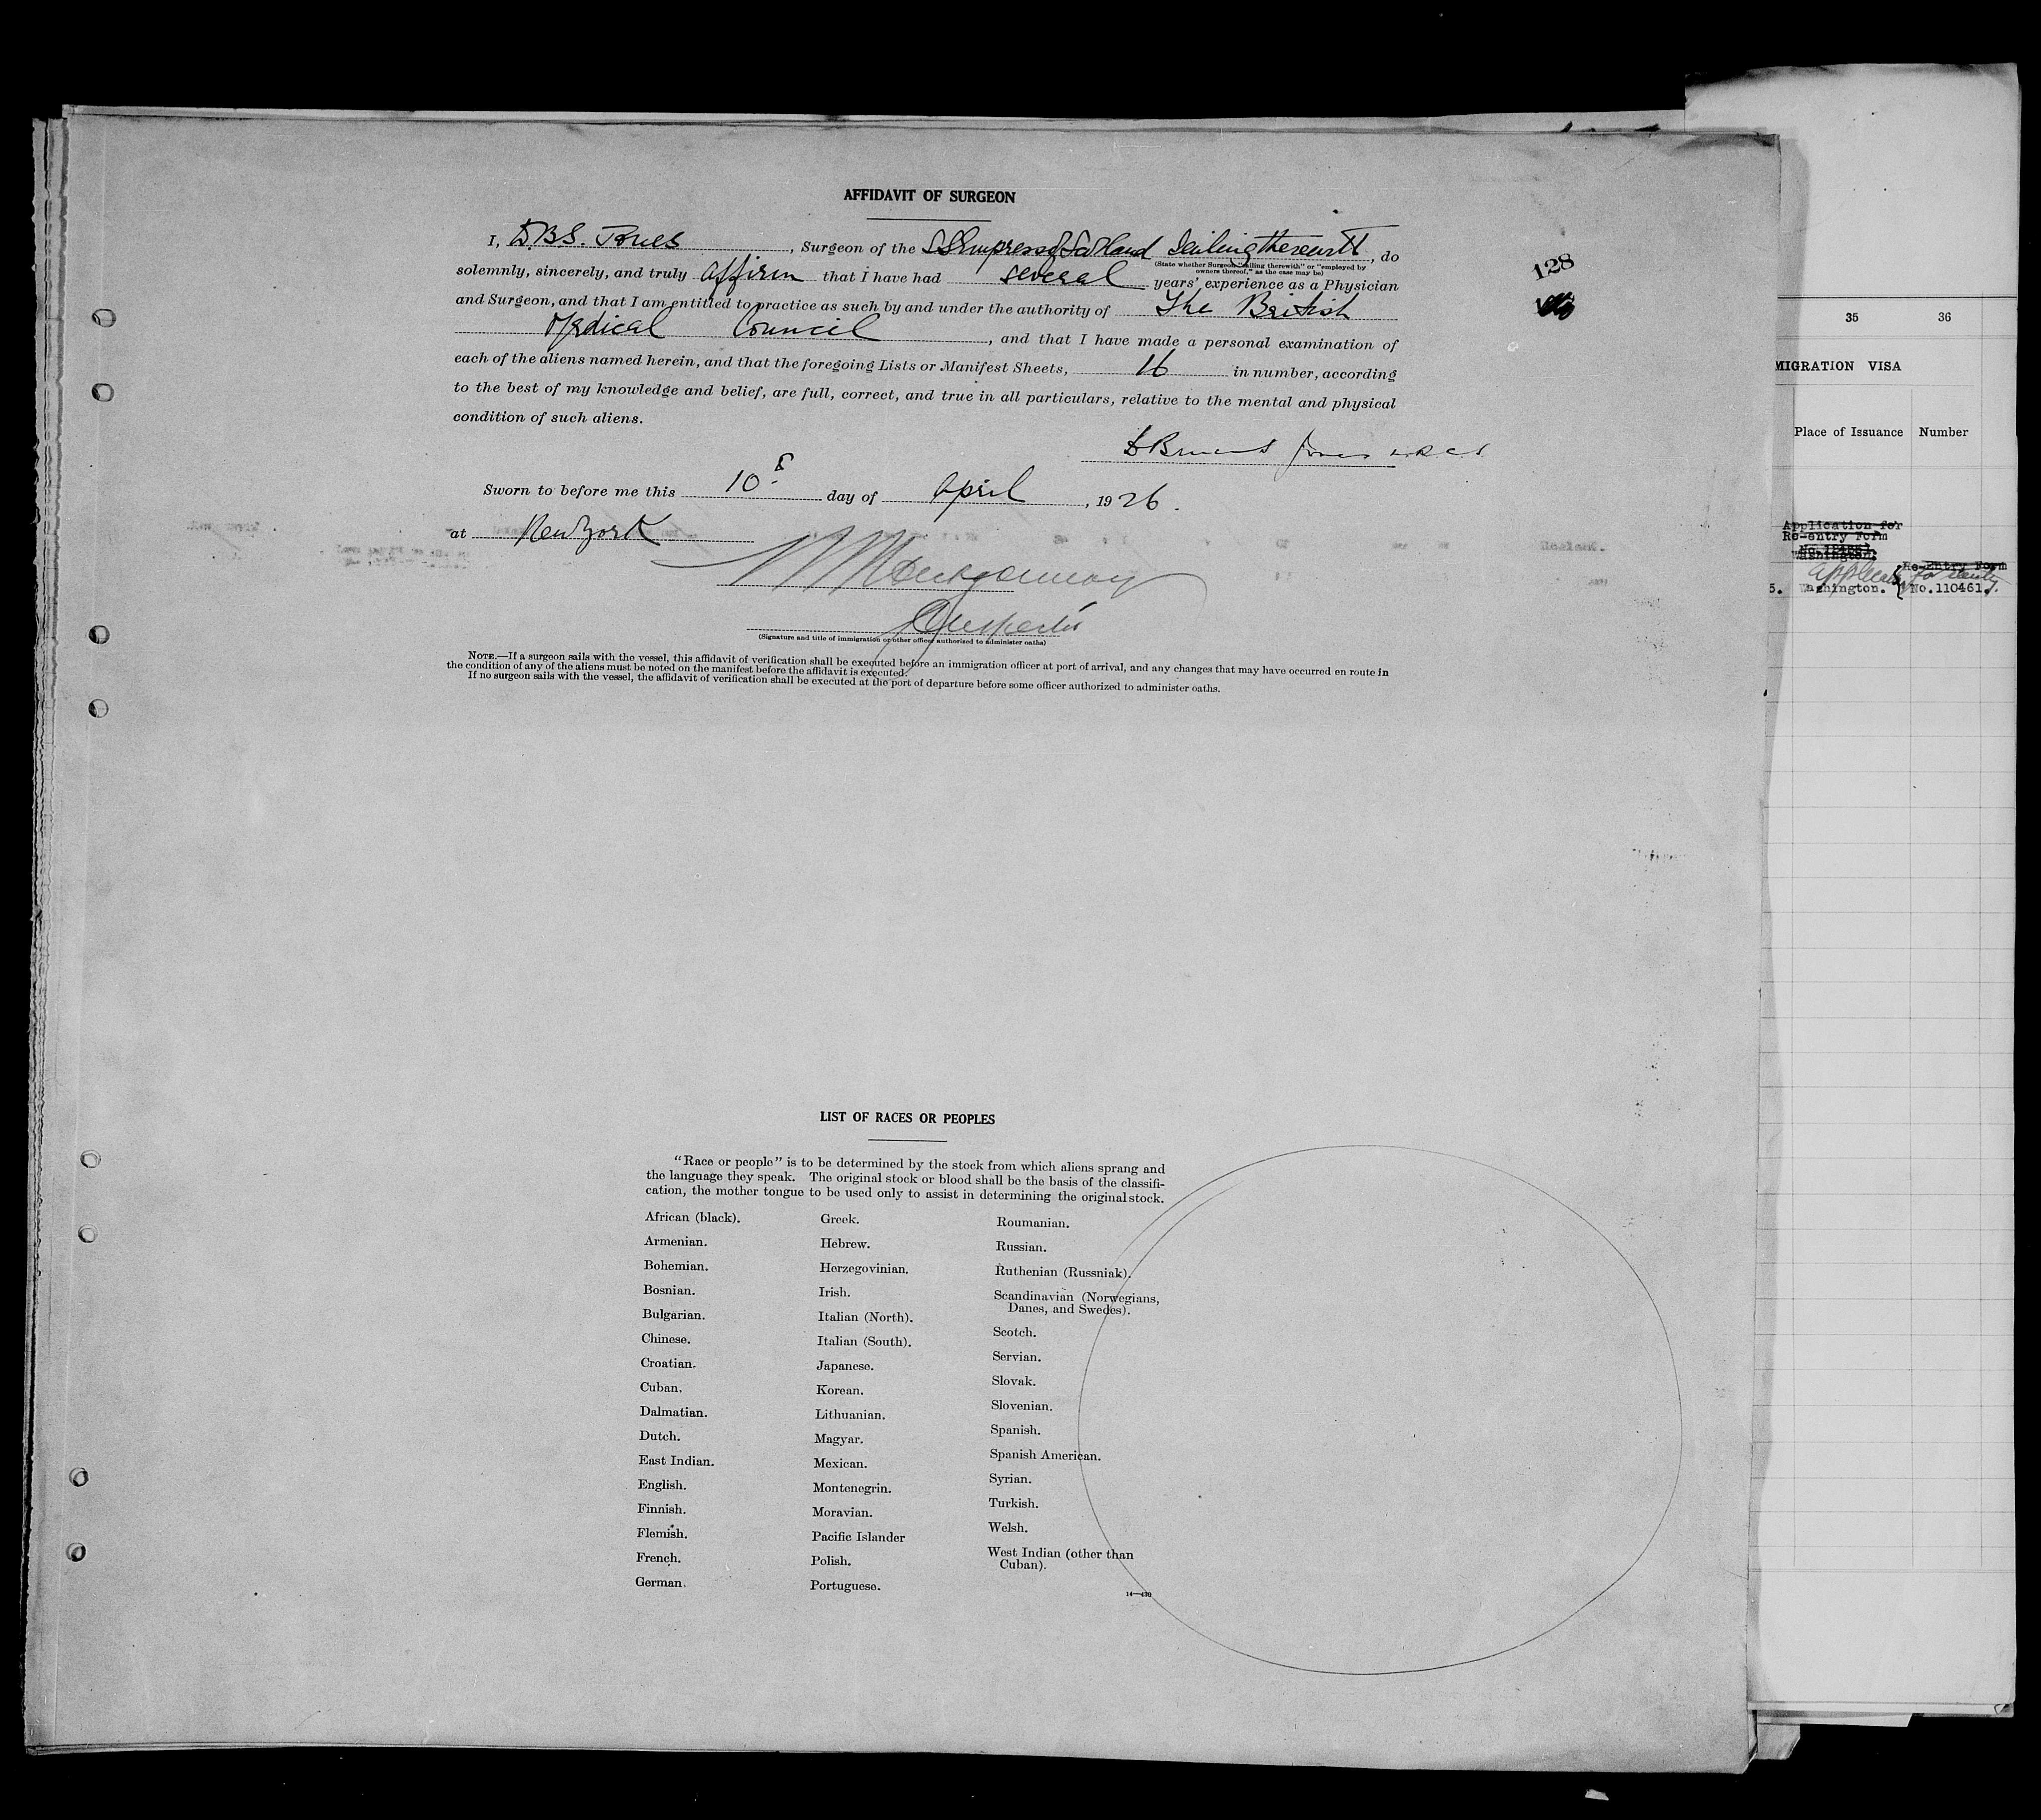 AFFIDAVIT OF SURGEON
I, D.B.S. Jones, Surgeon of the SS Empress of Scotland Sailing therewith, do
(State whether Surgeon "sailing therewith" or "employed by
owners thereof," as the case may be)
solemnly, sincerely, and truly affirm that I have had several years' experience as a Physician
and Surgeon, and that I am entitled to practice as such by and under the authority of The British
Medical Council, and that I have made a personal examination of
each of the aliens named herein, and that the foregoing Lists or Manifest Sheets, 16 in number, according
to the best of my knowledge and belief, are full, correct, and true in all particulars, relative to the mental and physical
condition of such aliens.
Jones
Sworn to before me this 10 day of April, 1926.
at New York
Montgomery
(Signature and title of immigration or other officer authorized to administer oaths)
NOTE.—If a surgeon sails with the vessel, this affidavit of verification shall be executed before an immigration officer at port of arrival, and any changes that may have occurred en route in
the condition of any of the aliens must be noted on the manifest before the affidavit is executed.
If no surgeon sails with the vessel, the affidavit of verification shall be executed at the port of departure before some officer authorized to administer oaths.
128
LIST OF RACES OR PEOPLES
"Race or people" is to be determined by the stock from which aliens sprang and
the language they speak. The original stock or blood shall be the basis of the classifi-
cation, the mother tongue to be used only to assist in determining the original stock.
African (black).
Armenian.
Bohemian.
Bosnian.
Bulgarian.
Chinese.
Croatian.
Cuban.
Dalmatian.
Dutch.
East Indian.
English.
Finnish.
Flemish.
French.
German.
Greek.
Hebrew.
Herzegovinian.
Irish.
Italian (North).
Italian (South).
Japanese.
Korean.
Lithuanian.
Magyar.
Mexican.
Montenegrin.
Moravian.
Pacific Islander
Polish.
Portuguese.
Roumanian.
Russian.
Ruthenian (Russniak).
Scandinavian (Norwegians,
Danes, and Swedes).
Scotch.
Servian.
Slovak.
Slovenian.
Spanish.
Spanish American.
Syrian.
Turkish.
Welsh.
West Indian (other than
Cuban).
35 36
MIGRATION VISA
Place of Issuance Number
Application for
Re-entry Form
Washington.
Re-Entry Form
5. Washington. No.110461.